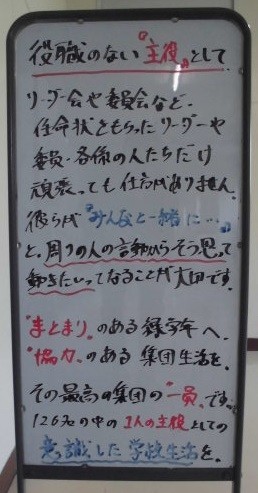 役職のない『主役』として
リーダー会や委員会など、
任命状をもらったリーダーや
委員・各係の人たちだけ
頑張っても仕方がありません。
彼らが『みんなと一緒に…』
と、周りの人の言動からそう思って
動きたいってなることが大切です。
"まとまり"のある緑学年へ。
"協力"のある集団生活を。
その最高の集団の"一員"です。
126名の中の1人の主役としての
意識した学校生活を。